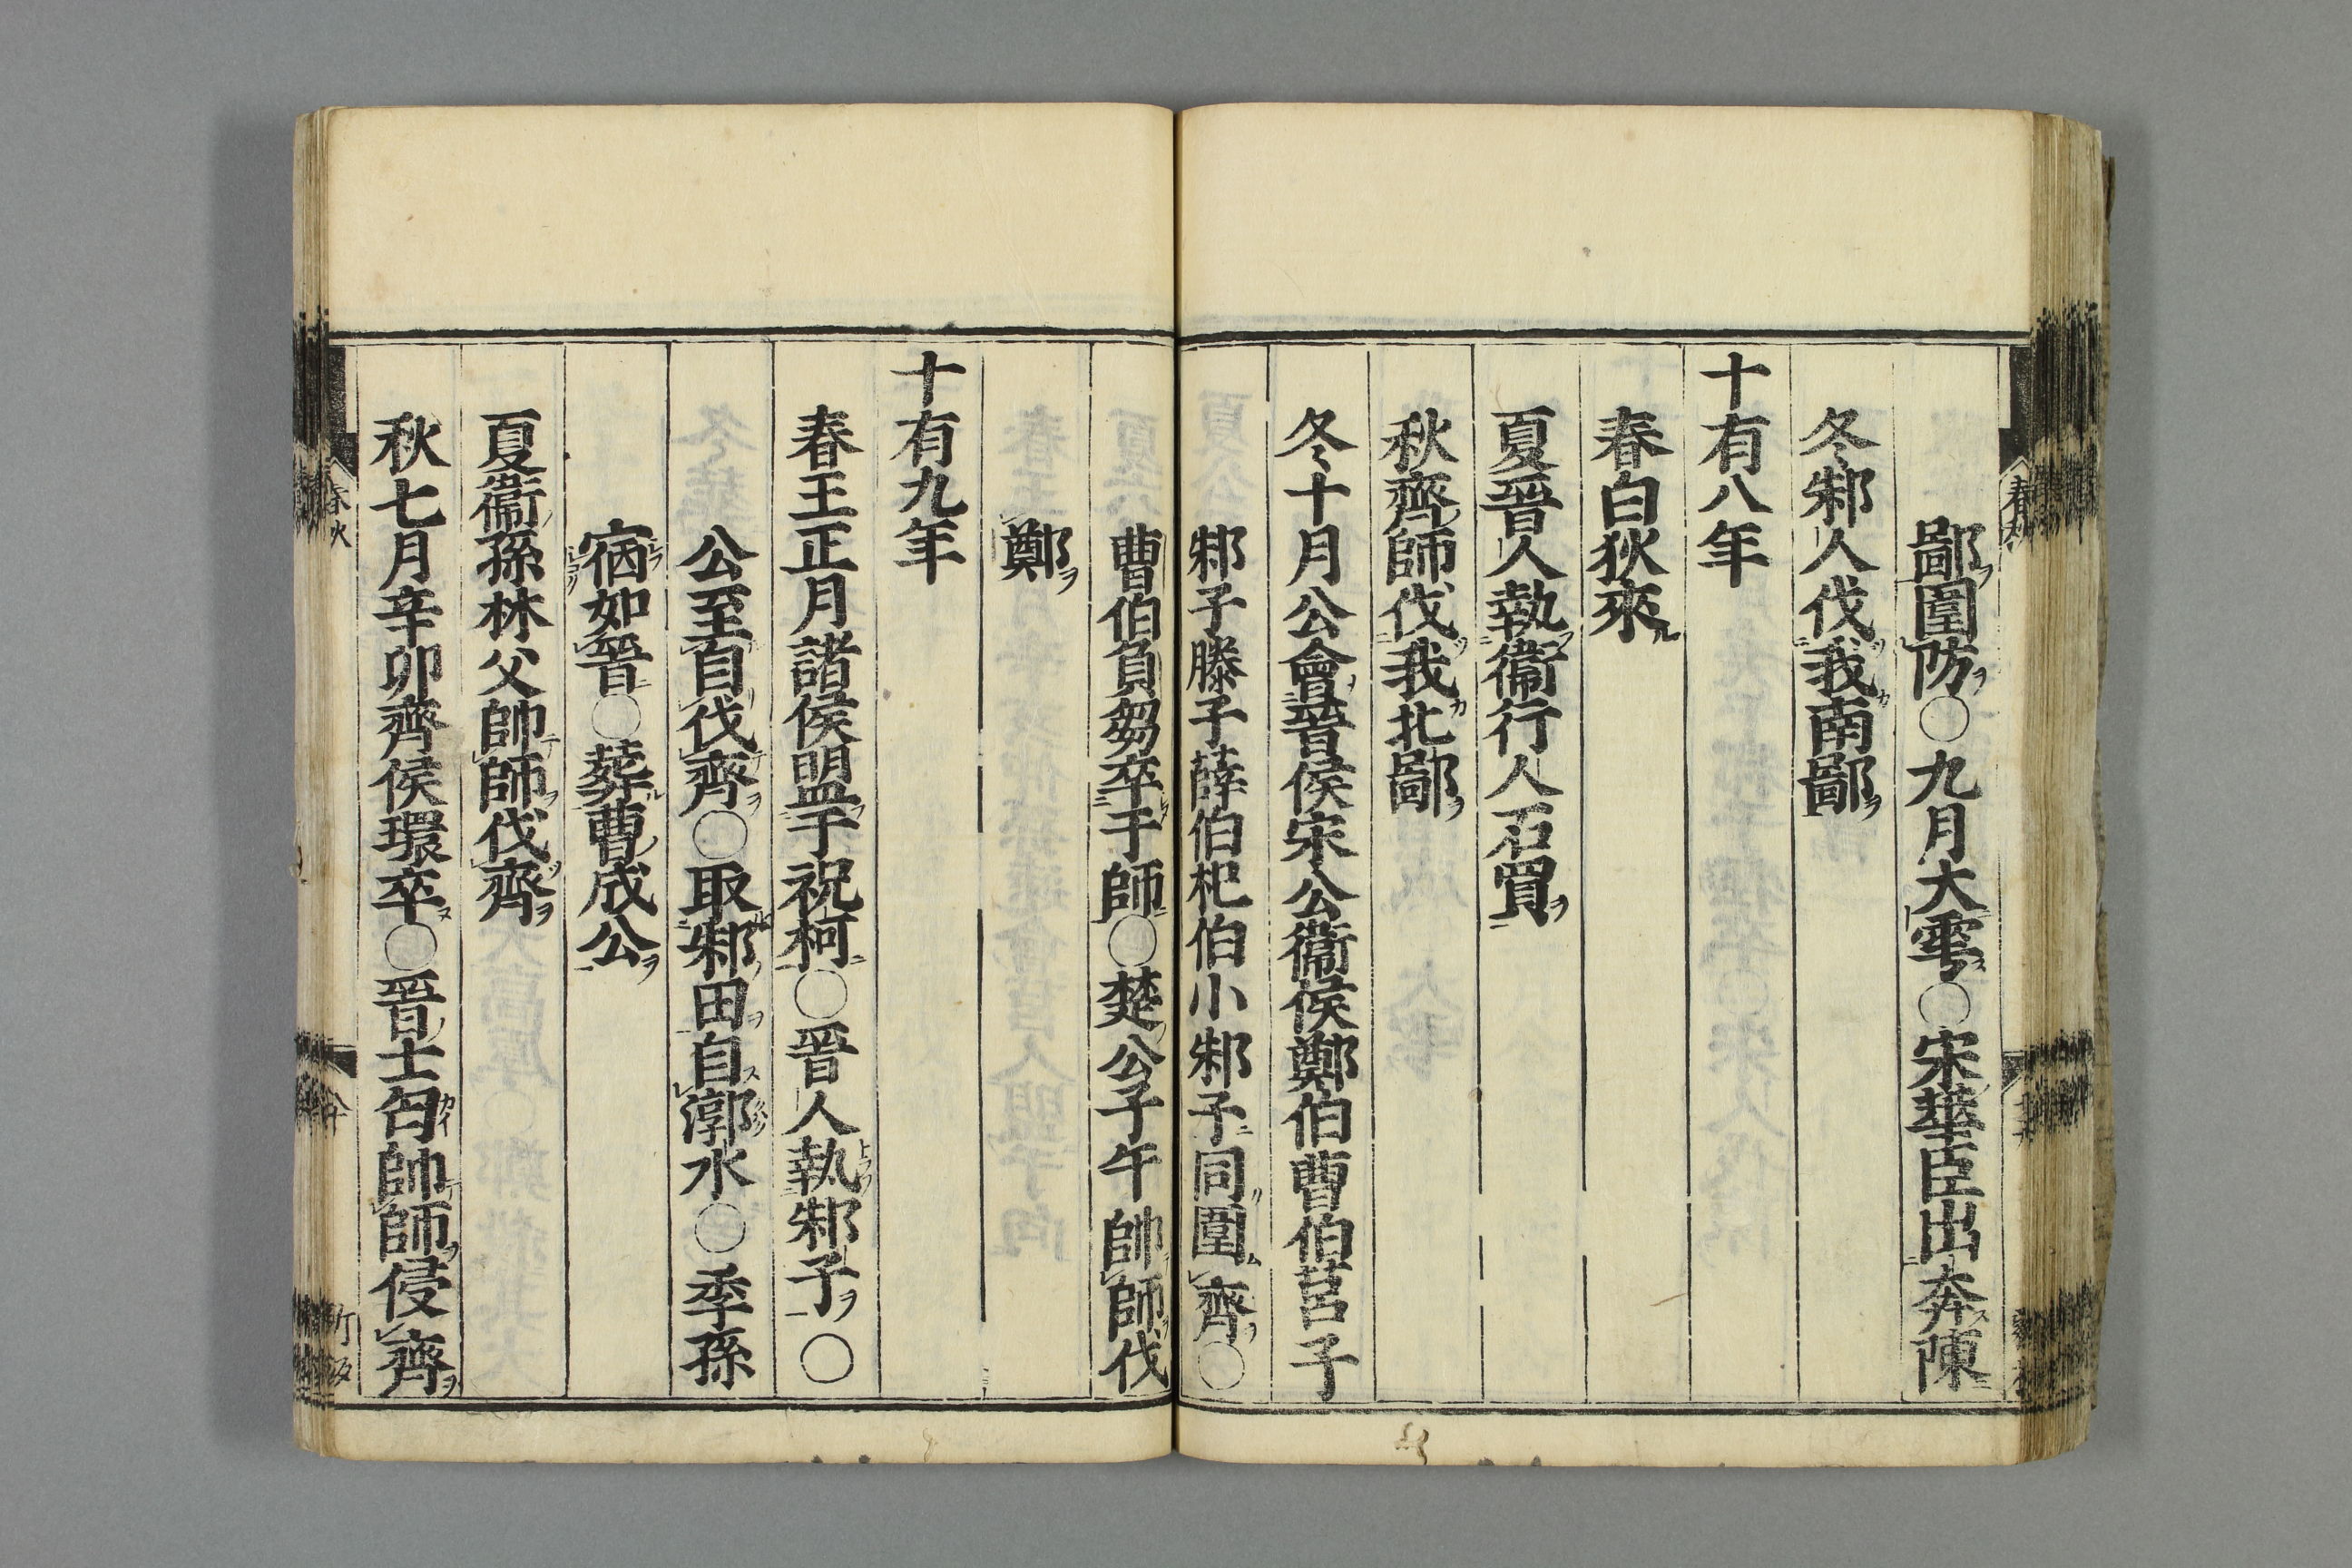 鄙圍防○九月大雩○宋華臣出奔陳
冬邾人伐我南鄙
十有八年
春白狄來
夏晉人執衞行人石買
秋齊師伐我北鄙
冬十月公會晉侯宋公衞侯鄭伯曹伯莒子
邾子滕子薛伯杞伯小邾子同圍齊○
曹伯負芻卒于師○楚公子午帥師伐
鄭
十有九年
春王正月諸侯盟于祝柯○晉人執邾子○
公至自伐齊○取邾田自漷水○季孫
宿如晉○葬曹成公
夏衞孫林父帥師伐齊
秋七月辛卯齊侯環卒○晉士匄帥師侵齊
春秋